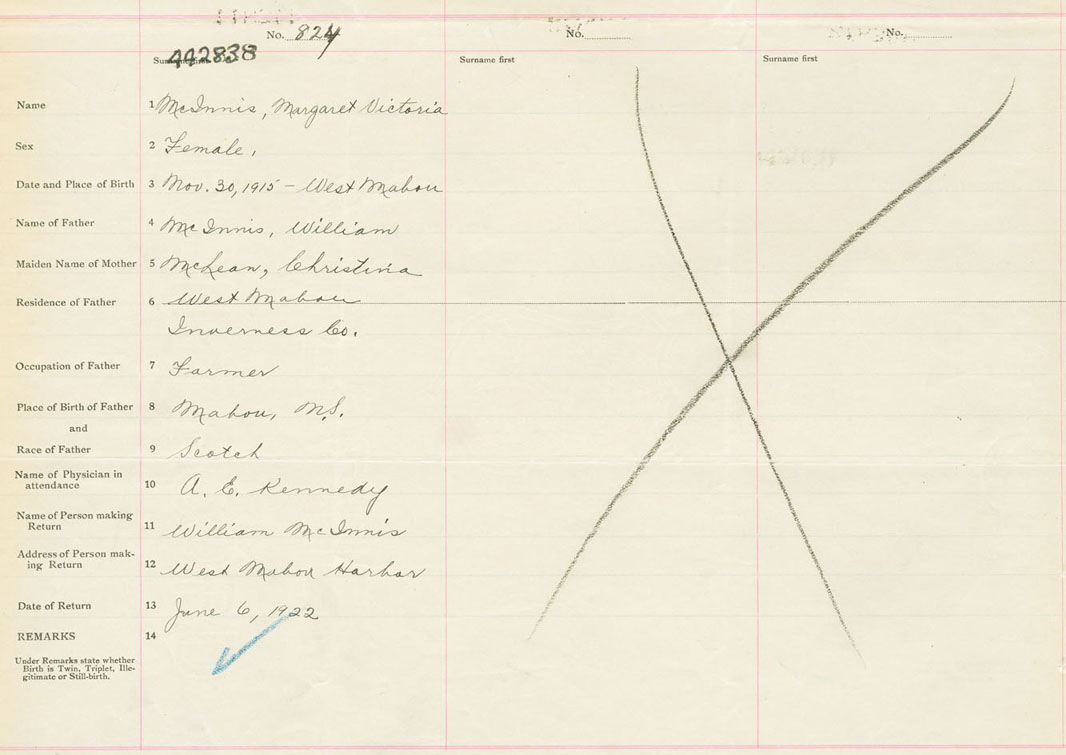 No. 824
No.
No.
442838
Surname first
Surname first
Name 1 McInnis, Margaret Victoria
Sex 2 Female,
Date and Place of Birth 3 Nov. 30, 1915 - West Mabou
Name of Father 4 McInnis, William
Maiden Name of Mother 5 McLean, Christina
Residence of Father 6 West Mabou
Inverness Co.
Occupation of Father 7 Farmer
Place of Birth of Father 8 Mabou, N.S.
and
Race of Father 9 Scotch
Name of Physician in
attendance 10 A. E. Kennedy
Name of Person making
Return 11 William McInnis
Address of Person mak-
ing Return 12 West Mabou Harbor
Date of Return 13 June 6, 1922
REMARKS 14
Under Remarks state whether
Birth is Twin, Triplet, Ille-
gitimate or Still-birth.